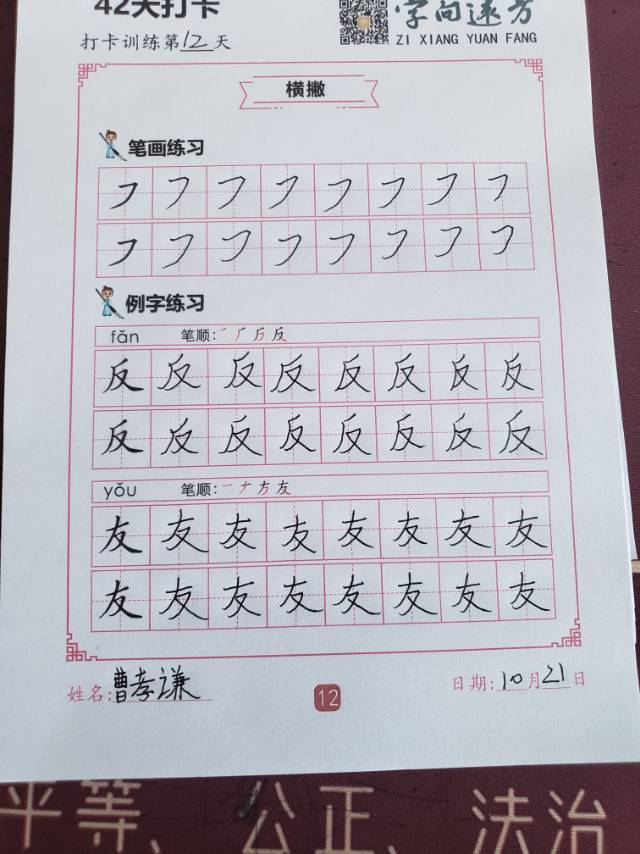 42天打卡
字向远方
打卡训练第12天
ZI XIANG YUAN FANG
横撇
笔画练习
㇇㇇㇇㇇㇇㇇㇇㇇
㇇㇇㇇㇇㇇㇇㇇㇇
例字练习
fǎn 笔顺: 反
反反反反反反反反
反反反反反反反反
yǒu 笔顺:一ナ方友
友友友友友友友友
友友友友友友友友
姓名:曹孝谦
12
日期:10月21日
平等、公正、法治